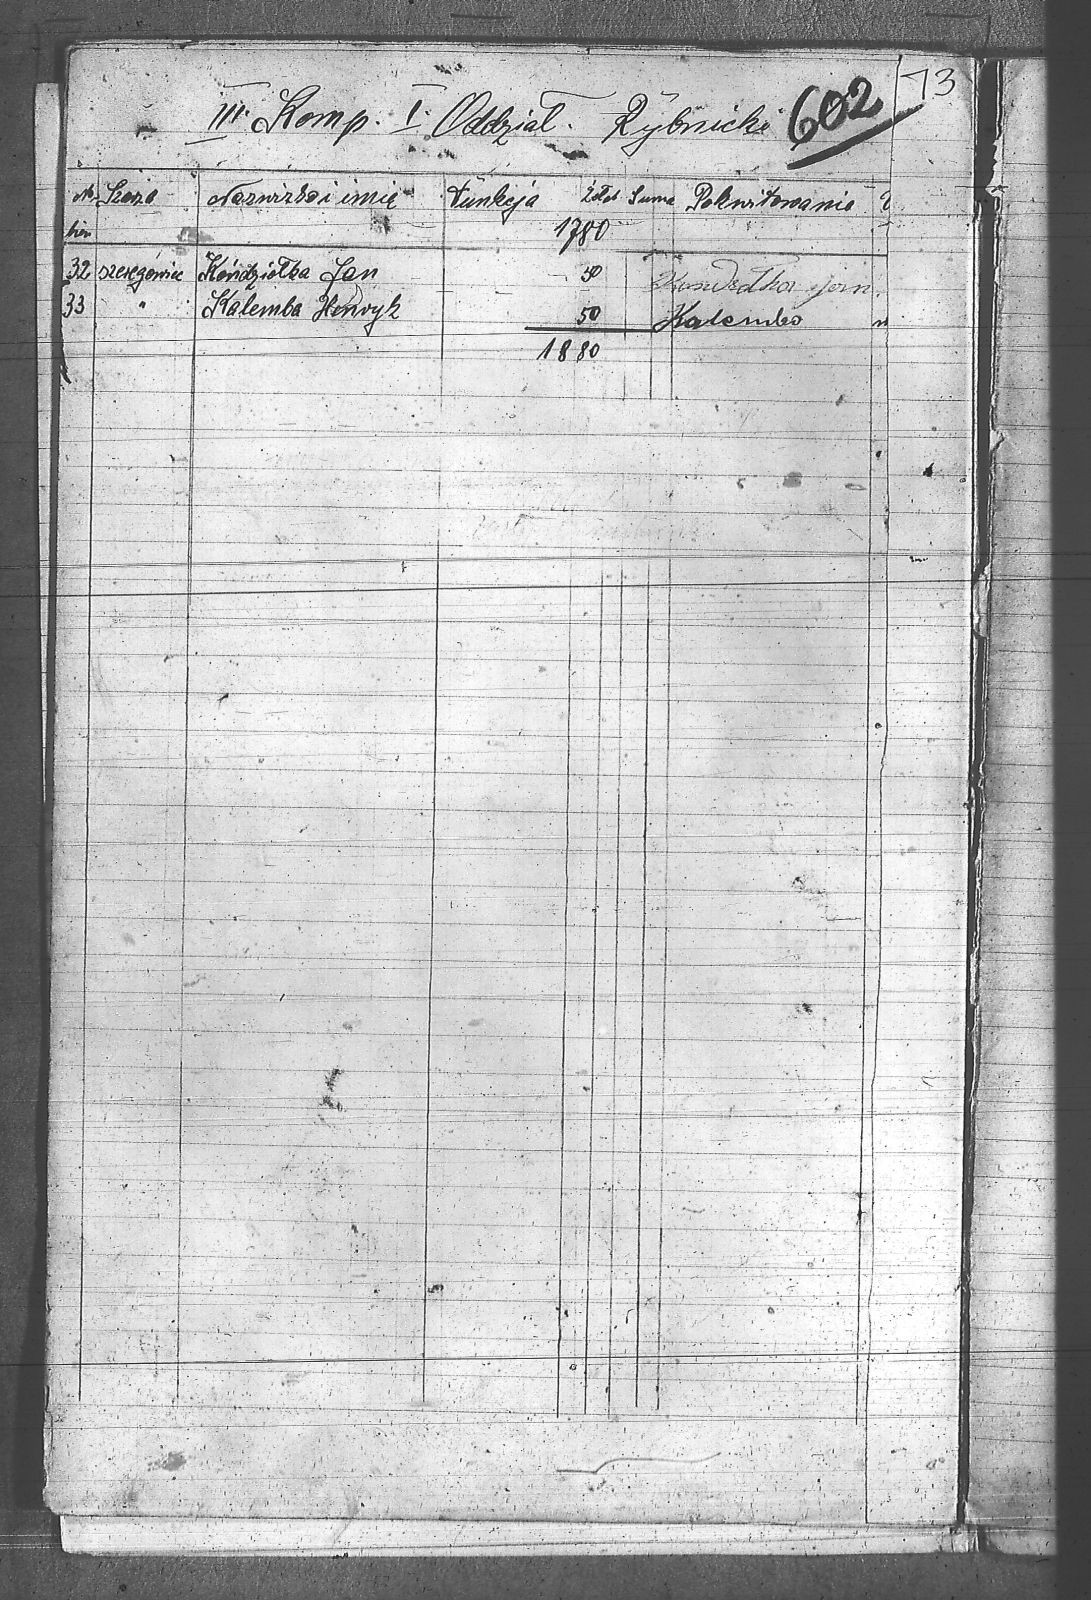 73
602
III. Komp. I. Oddział. Rybnicki
No Szarża Nazwisko i imię Funkcja Żołd Suma Pokwitowanie
1780
32 szeregowiec Kondziołka Jan 50
33 " Kalemba Henryk 50 Kalemba
1880